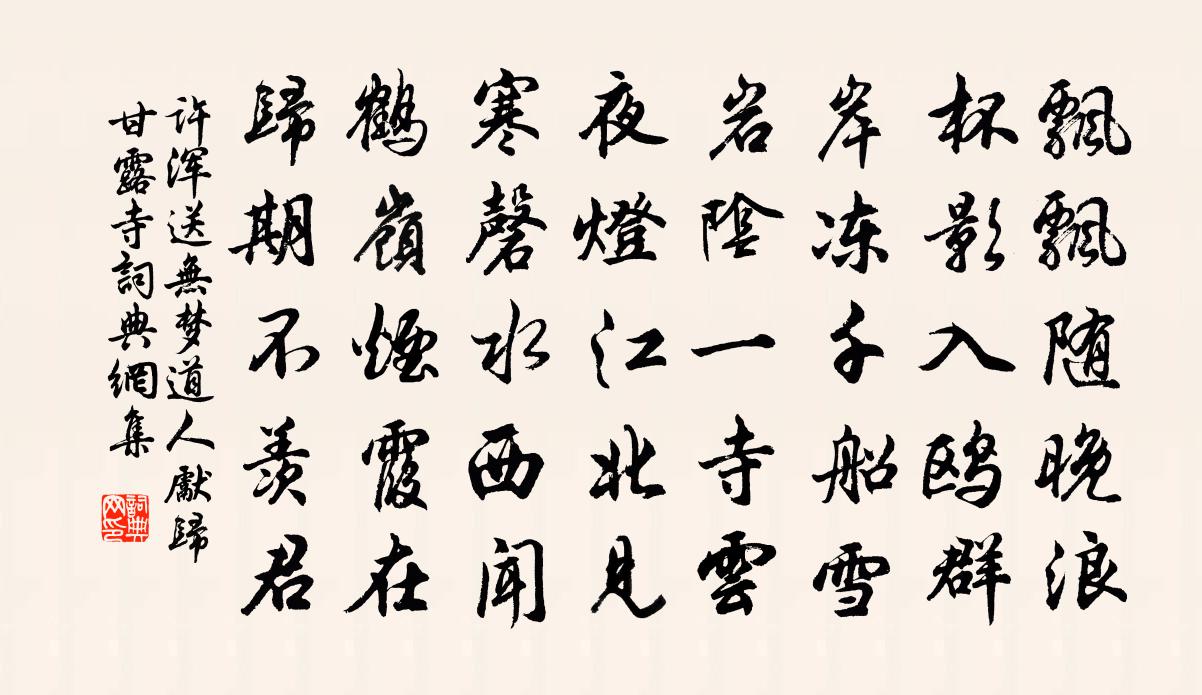 飄飄随晚浪
杯影入鸥群
岸冻千船雪
岩陰一寺雲
夜燈江北見
寒磬水西聞
鶴嶺煙霞在
歸期不羡君
许浑送無梦道人獻歸
甘露寺詞典網集
詞典
网印